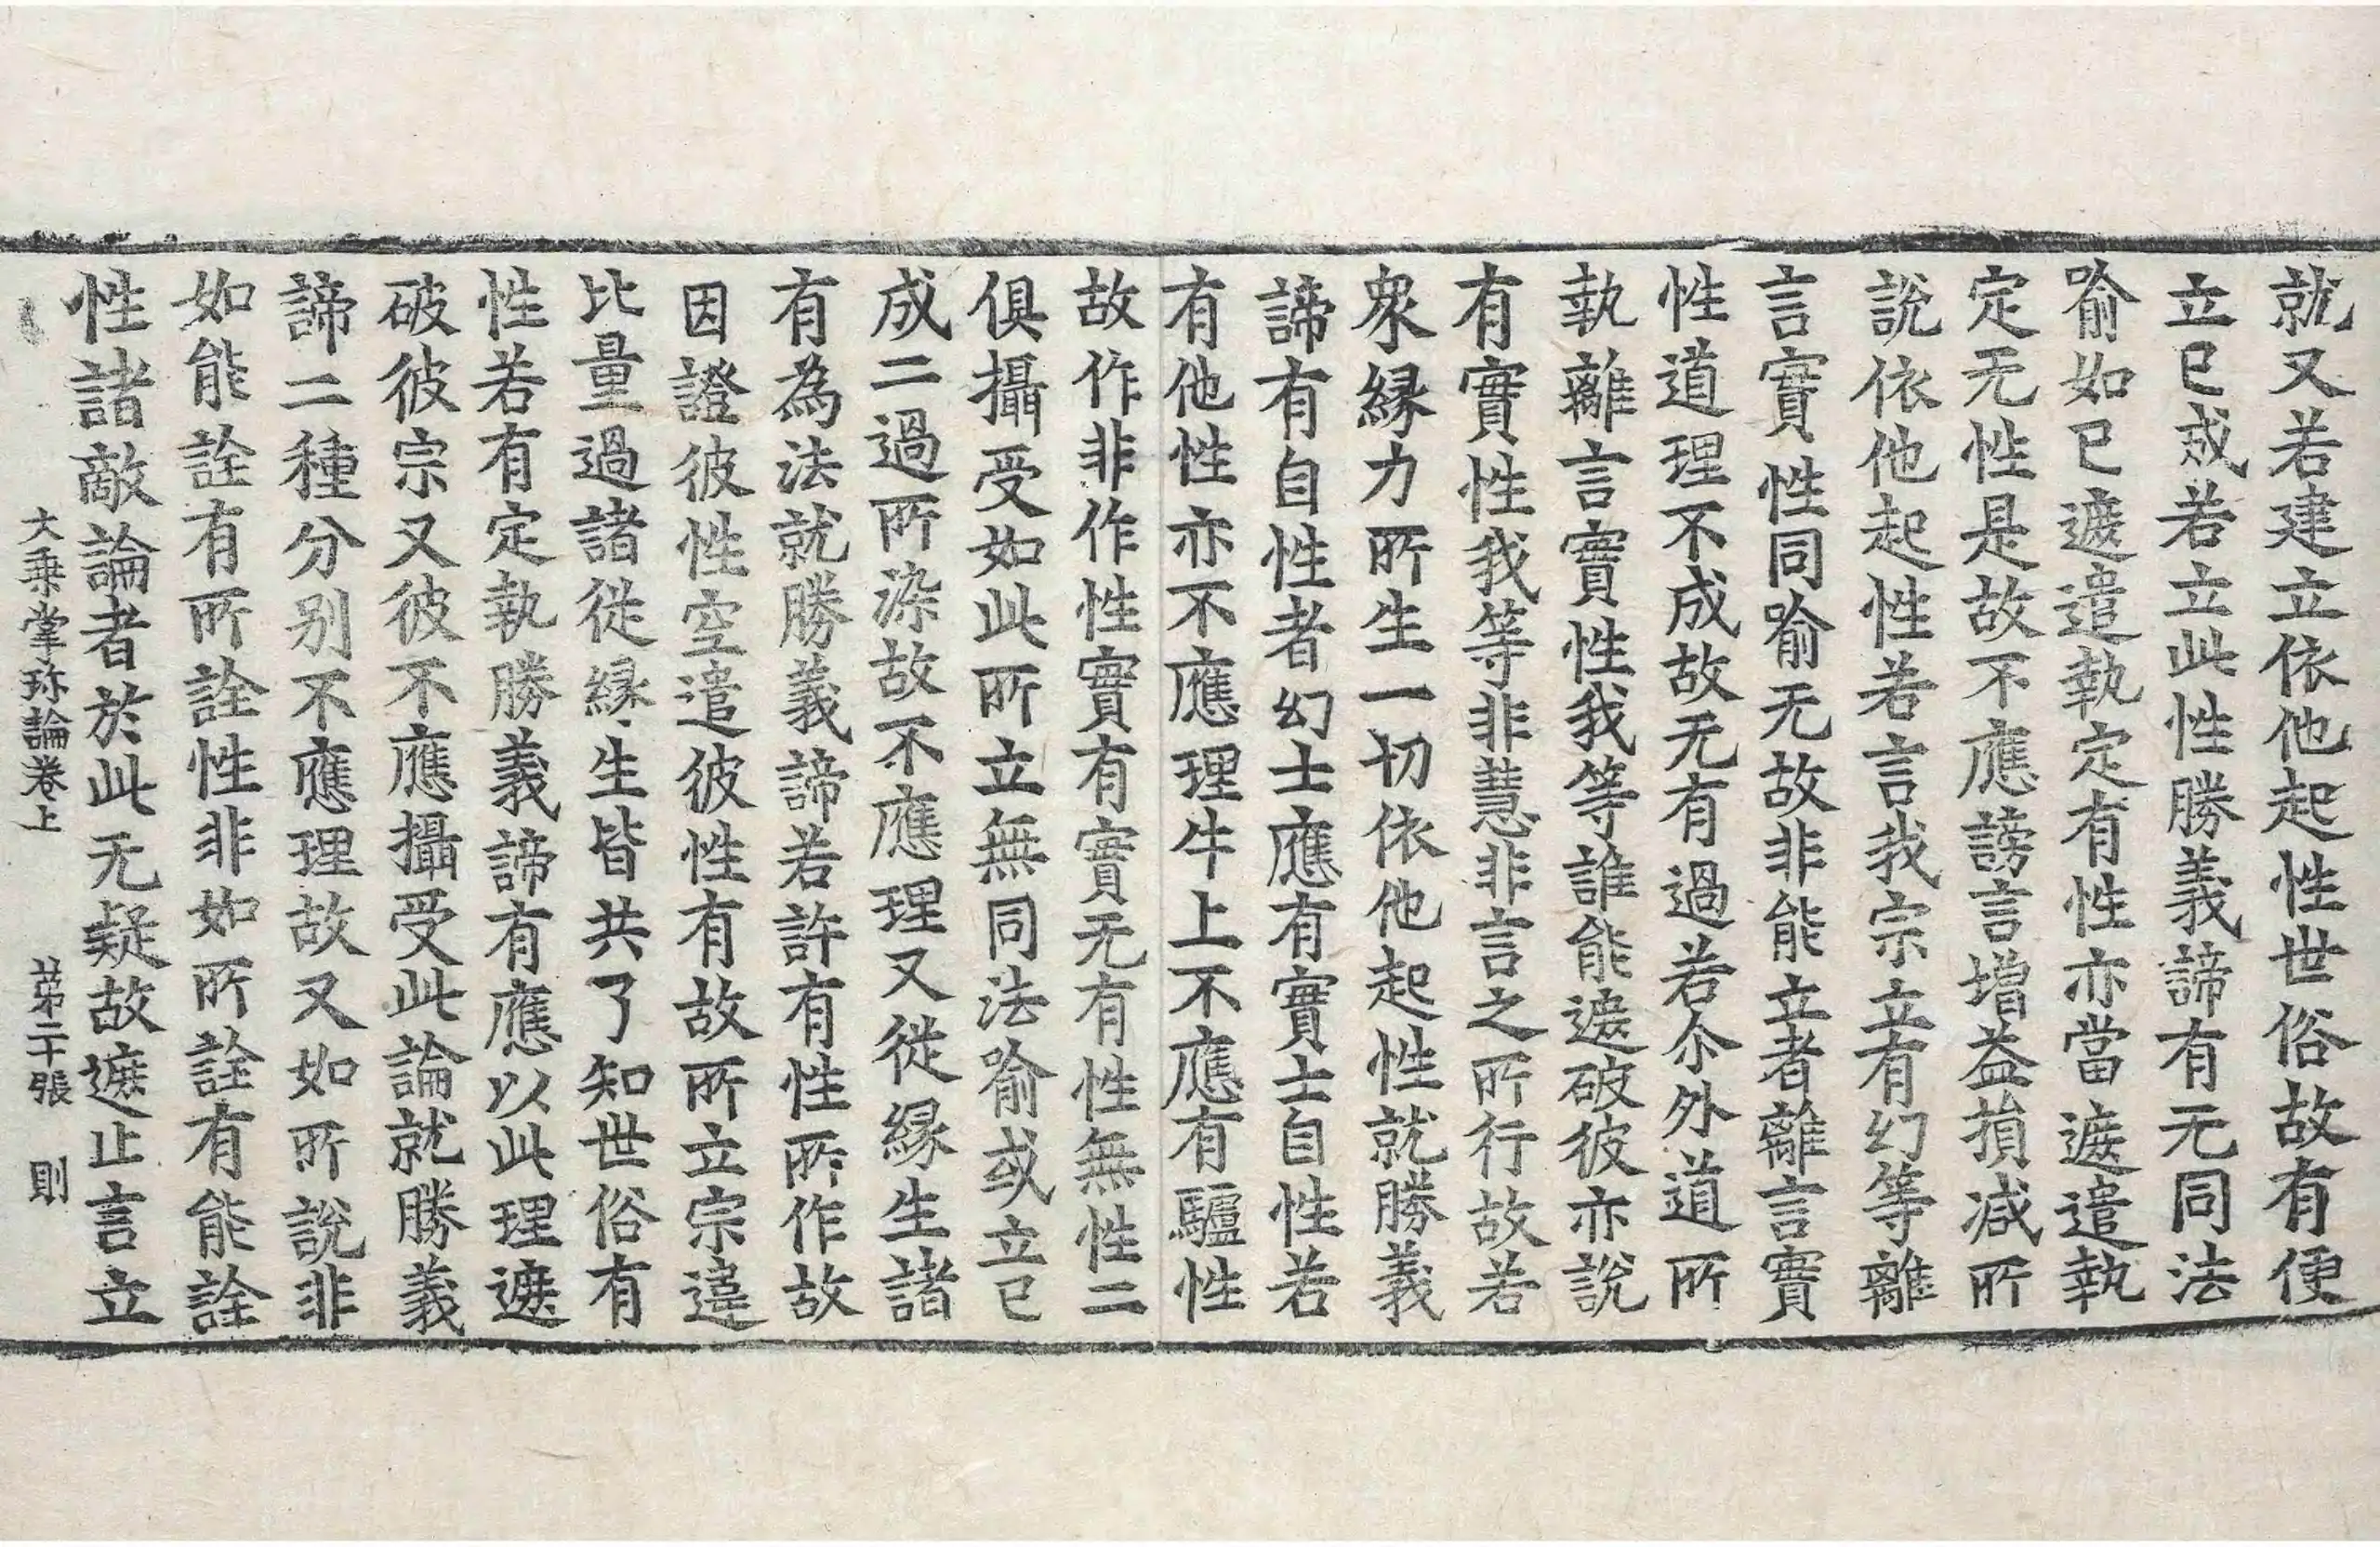 就又若建立依他起性世俗故有便
立已成若立此性勝義諦有无同法
喻如已遮遣執定有性亦當遮遣執
定无性是故不應謗言增益損减所
說依他起性若言我宗立有幻等離
言實性同喻无故非能立者離言實
性道理不成故无有過若尒外道所
執離言實性我等誰能遮破彼亦說
有實性我等非慧非言之所行故若
衆縁力所生一切依他起性就勝義
諦有自性者幻士應有實士自性若
有他性亦不應理牛上不應有驢性
故作非作性實有實无有性無性二
俱攝受如此所立無同法喻或立已
成二過所染故不應理又從縁生諸
有為法就勝義諦若許有性所作故
因證彼性空遣彼性有故所立宗違
比量過諸從縁生皆共了知世俗有
性若有定執勝義諦有應以此理遮
破彼宗又彼不應攝受此論就勝義
諦二種分别不應理故又如所說非
如能詮有所詮性非如所詮有能詮
性諸敵論者於此无疑故遮止言立
大乗掌珎論卷上 苐二十張 則